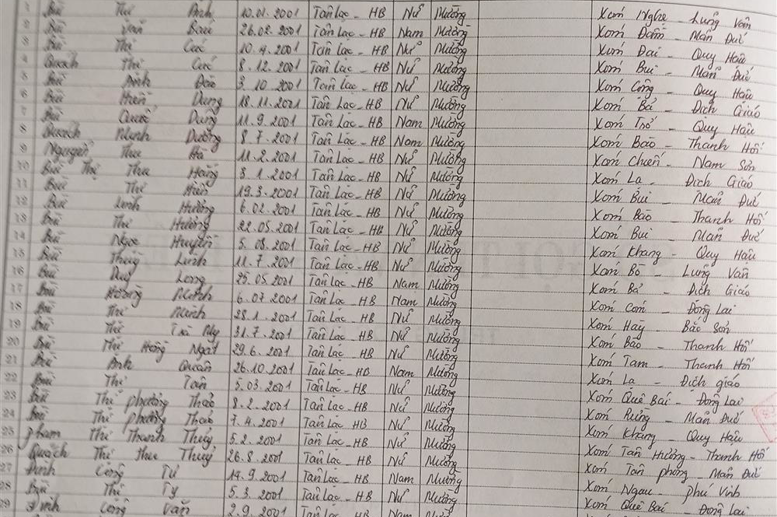 1 Bùi Thị Anh 10.01.2001 Tân Lạc - HB Nữ Mường Xóm Nghẹ - Lũng Vân
2 Bùi Văn 26.02.2001 Tân Lạc - HB Nam Mường Xóm - Mãn Đức
3 Bùi Thị Cúc 10.4.2001 Tân Lạc - HB Nữ Mường Xóm - Quy Hậu
4 Quách Thị Cúc 8.12.2001 Tân Lạc - HB Nữ Mường Xóm Bui - Mãn Đức
5 Bùi Đào 3.10.2001 Tân Lạc - HB Nữ Mường Xóm Cộng - Quy Hậu
6 Bùi Hiền Dung 18.11.2001 Tân Lạc - HB Nữ Mường Xóm Bá - Địch Giáo
7 Bùi Quốc Dung 11.9.2001 Tân Lạc - HB Nam Mường Xóm - Quy Hậu
8 Quách Dương 8.7.2001 Tân Lạc - HB Nam Mường Xóm Bào - Thanh Hối
9 Nguyễn Thu Hà 11.2.2001 Tân Lạc - HB Nữ Mường Xóm Chiến - Nam Sơn
10 Bùi Thị Thu Hằng 8.1.2001 Tân Lạc - HB Nữ Mường Xóm La - Địch Giáo
11 Bùi Thị Hiền 19.3.2001 Tân Lạc - HB Nữ Mường Xóm Bui - Mãn Đức
12 Bùi Linh Hương 6.02.2001 Tân Lạc - HB Nữ Mường Xóm Bào - Thanh Hối
13 Bùi Thị Hương 22.05.2001 Tân Lạc - HB Nữ Mường Xóm Bui - Mãn Đức
14 Bùi Ngọc Huyền 5.08.2001 Tân Lạc - HB Nữ Mường Xóm Khang - Quy Hậu
15 Bùi Thùy Linh 11.7.2001 Tân Lạc - HB Nữ Mường Xóm Bo - Lũng Vân
16 Bùi Duy Long 25.05.2001 Tân Lạc - HB Nam Mường Xóm Bá - Địch Giáo
17 Bùi Hoàng Minh 6.07.2001 Tân Lạc - HB Nam Mường Xóm - Đông Lai
18 Bùi Thị 28.1.2001 Tân Lạc - HB Nữ Mường Xóm Hày - Bảo Sơn
19 Bùi Thị Trà My 31.7.2001 Tân Lạc - HB Nữ Mường Xóm Bào - Thanh Hối
20 Bùi Thị Hồng Ngát 29.6.2001 Tân Lạc - HB Nữ Mường Xóm Tam - Thanh Hối
21 Bùi Anh Quân 26.10.2001 Tân Lạc - HB Nam Mường Xóm La - Địch giáo
22 Bùi Thị Tân 5.03.2001 Tân Lạc - HB Nữ Mường Xóm Quê Bái - Đông Lai
23 Bùi Thị phương Thảo 8.2.2001 Tân Lạc - HB Nữ Mường Xóm - Mãn Đức
24 Bùi Thị phương Thảo 7.4.2001 Tân Lạc - HB Nữ Mường Xóm Khang - Quy Hậu
25 phạm Thị Thanh Thuý 5.2.2001 Tân Lạc - HB Nữ Mường Xóm Tân Hương - Thanh Hối
26 Quách Thị thu Thuý 26.8.2001 Tân Lạc - HB Nữ Mường Xóm Tân phong - Mãn Đức
27 Đinh Công Tứ 14.9.2001 Tân Lạc - HB Nam Mường Xóm Ngau - Phú Vinh
28 Bùi Thị Ty 5.3.2001 Tân Lạc - HB Nữ Mường Xóm Quê Bái - Đông Lai
29 Đinh Công Văn 2.9.2001 Tân Lạc - HB Nam Mường